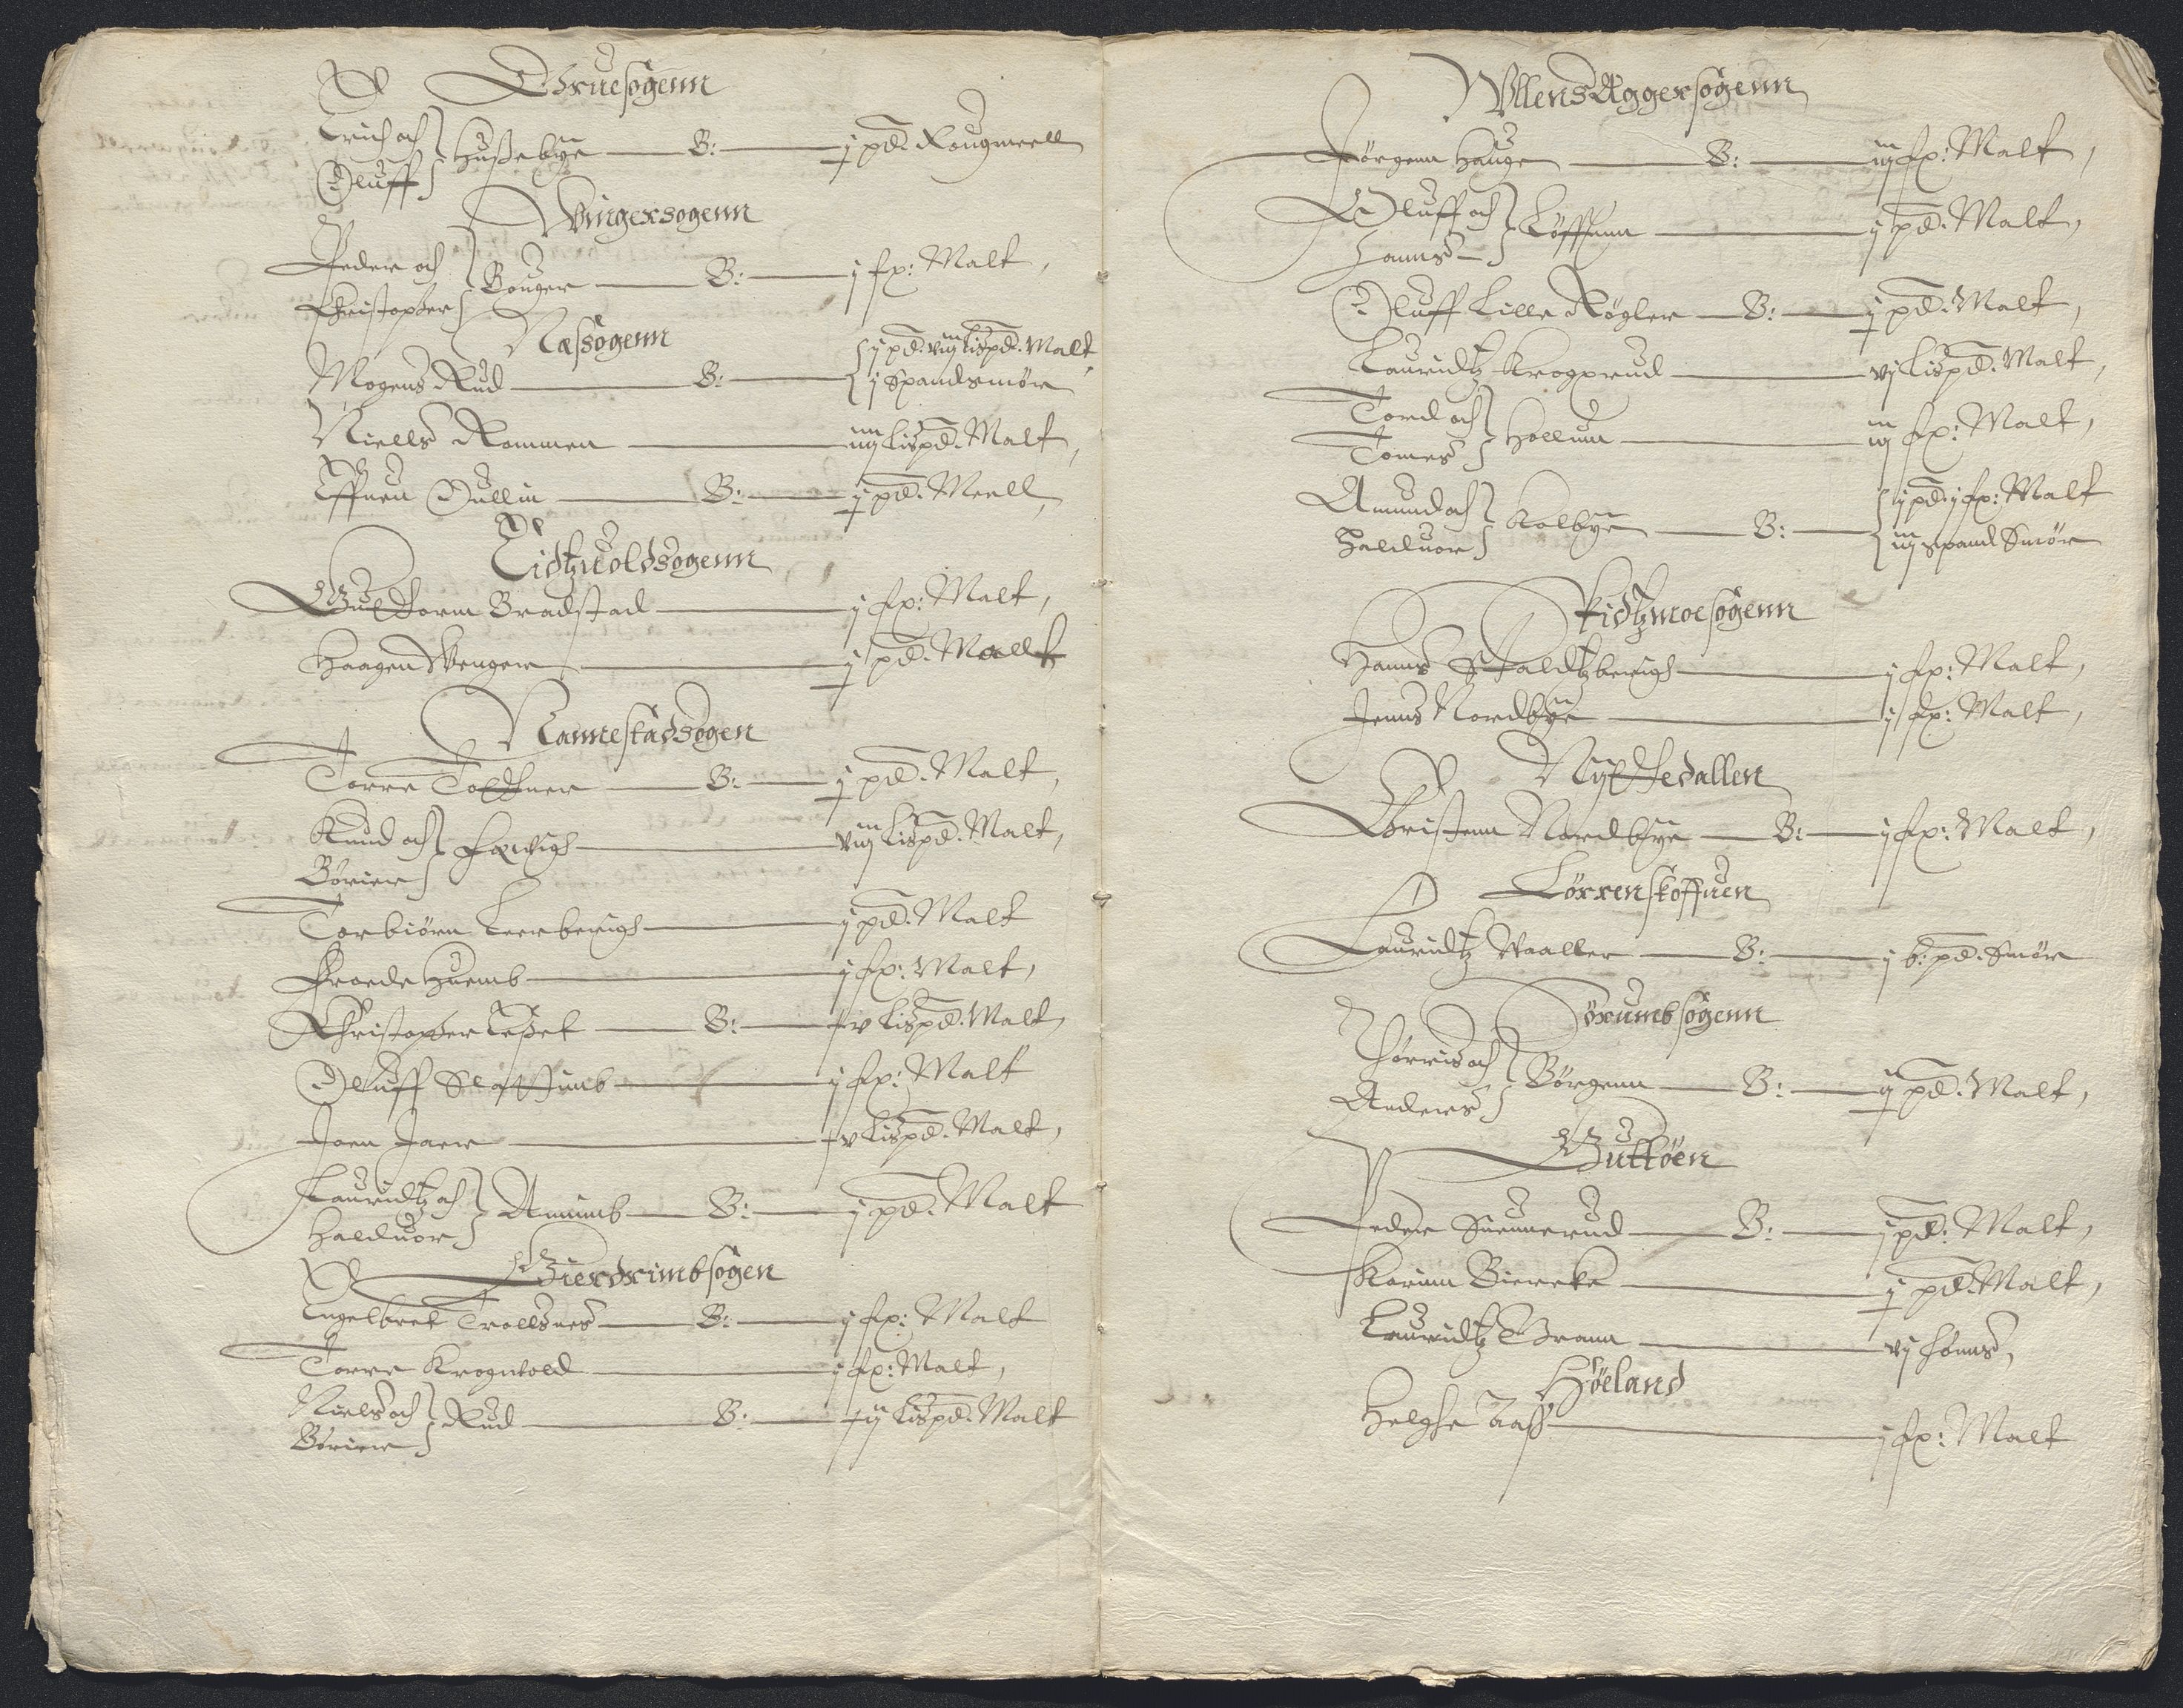 Gruesogenn
Erich och
Oluff } Hußebye — B: — j pd. Rougmeell
Wingersogenn
Peder och
Christopher } Bouger — B: — j fx: Malt,
Næsogenn
Mogens Rud — B: — { j pd. viij Lispd. Malt,
j Spand smör
Niells Rommen — iiij Lispd. Malt,
Effuen Dullin — B: — j pd. Meell,
Eidtzuoldsogenn
Guttorm Bradstad — j fx: Malt,
Haagen Wenger — j pd. Mallt
Nannestadsogen
Torre Toldtner — B: — j pd. Malt,
Knud och
Börier } — viij Lispd. Malt,
Torbiörn Leerberigh — j pd. Malt
Froede Huemb — j fx: Malt,
Christopher Leßet — B: — v Lispd. Malt,
Oluff Slattumb — j fx: Malt
Joen Jaer — v Lispd. Malt,
Lauridtz och
Halduor } Amumb — B: — j pd. Malt
Gierdrimbsogen
Engelbret Trollsnes — B: — j fx: Malt
Torre Krogvold — j fx: Malt,
Niels och
Börier } Rud — B: — ij Lispd. Malt
WllensAggersogenn
Jörgenn Hauge — B: — iij fx: Malt,
Oluff och
Hanns } Löffuen — j pd. Malt,
Oluff Lille Rögler — B: — j pd. Malt,
Lauridtz Krogxrud — vj Lispd. Malt,
Tord och
Tomes } Hollum — iij fx: Malt,
Amund och
Halduor } Kolbye — B: — { j pd. j fx: Malt
iij spand Smör
Skidtzmoesogenn
Hanns Skaldtzberigh — j fx: Malt,
Jenns Nordbye — j fx: Malt,
Nittedallen
Christenn Nordbye — B: — j fx: Malt,
Lörrenskoffuen
Lauridtz Waaller — B: — j b: pd. Smör
Sörumbsogenn
Thörris och
Anders } Börgenn — B: — ij pd. Malt,
Guttöen
Peder Suennerud — B: — j pd: Malt,
Karinn Biercke — j pd. Malt,
Lauridtz Brann — vj hönns,
Höeland
Helghe Aaß — j fx: Malt